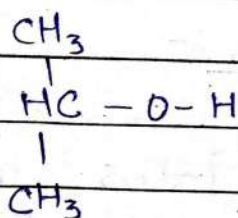 CH3
|
HC – O – H
|
CH3